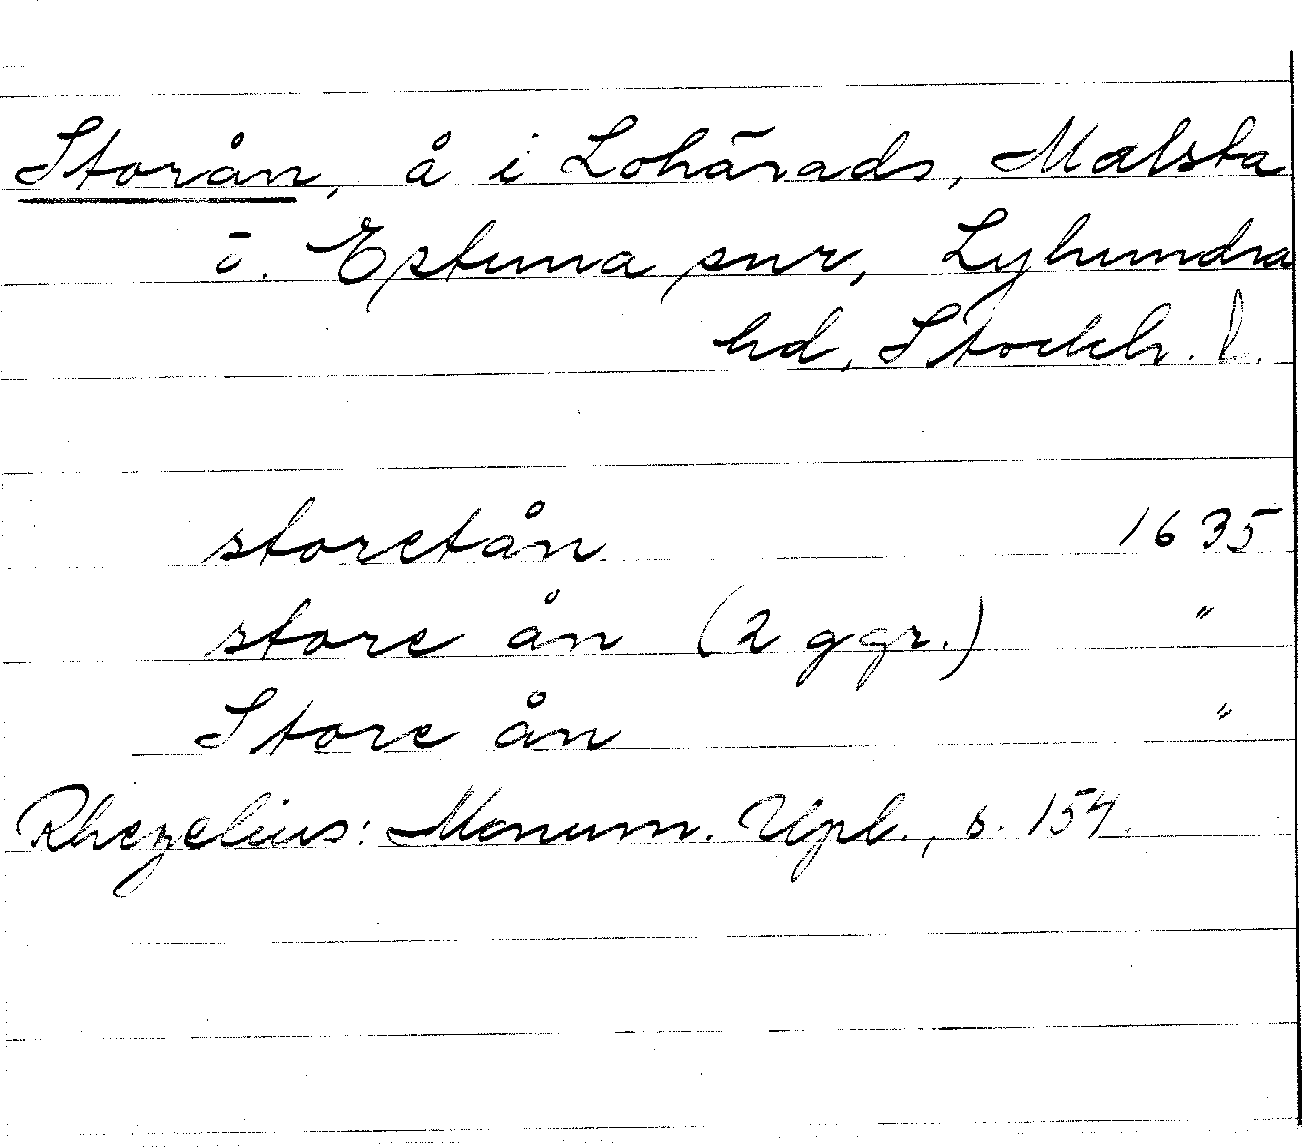 Storån, å i Lohärads, Malsta
o. Estuna snr, Lyhundra
hd, Stockh. l.
storetån 1635
store ån (2 ggr.) "
Store ån "
Rhezelius: Monum. Upl., s. 154.